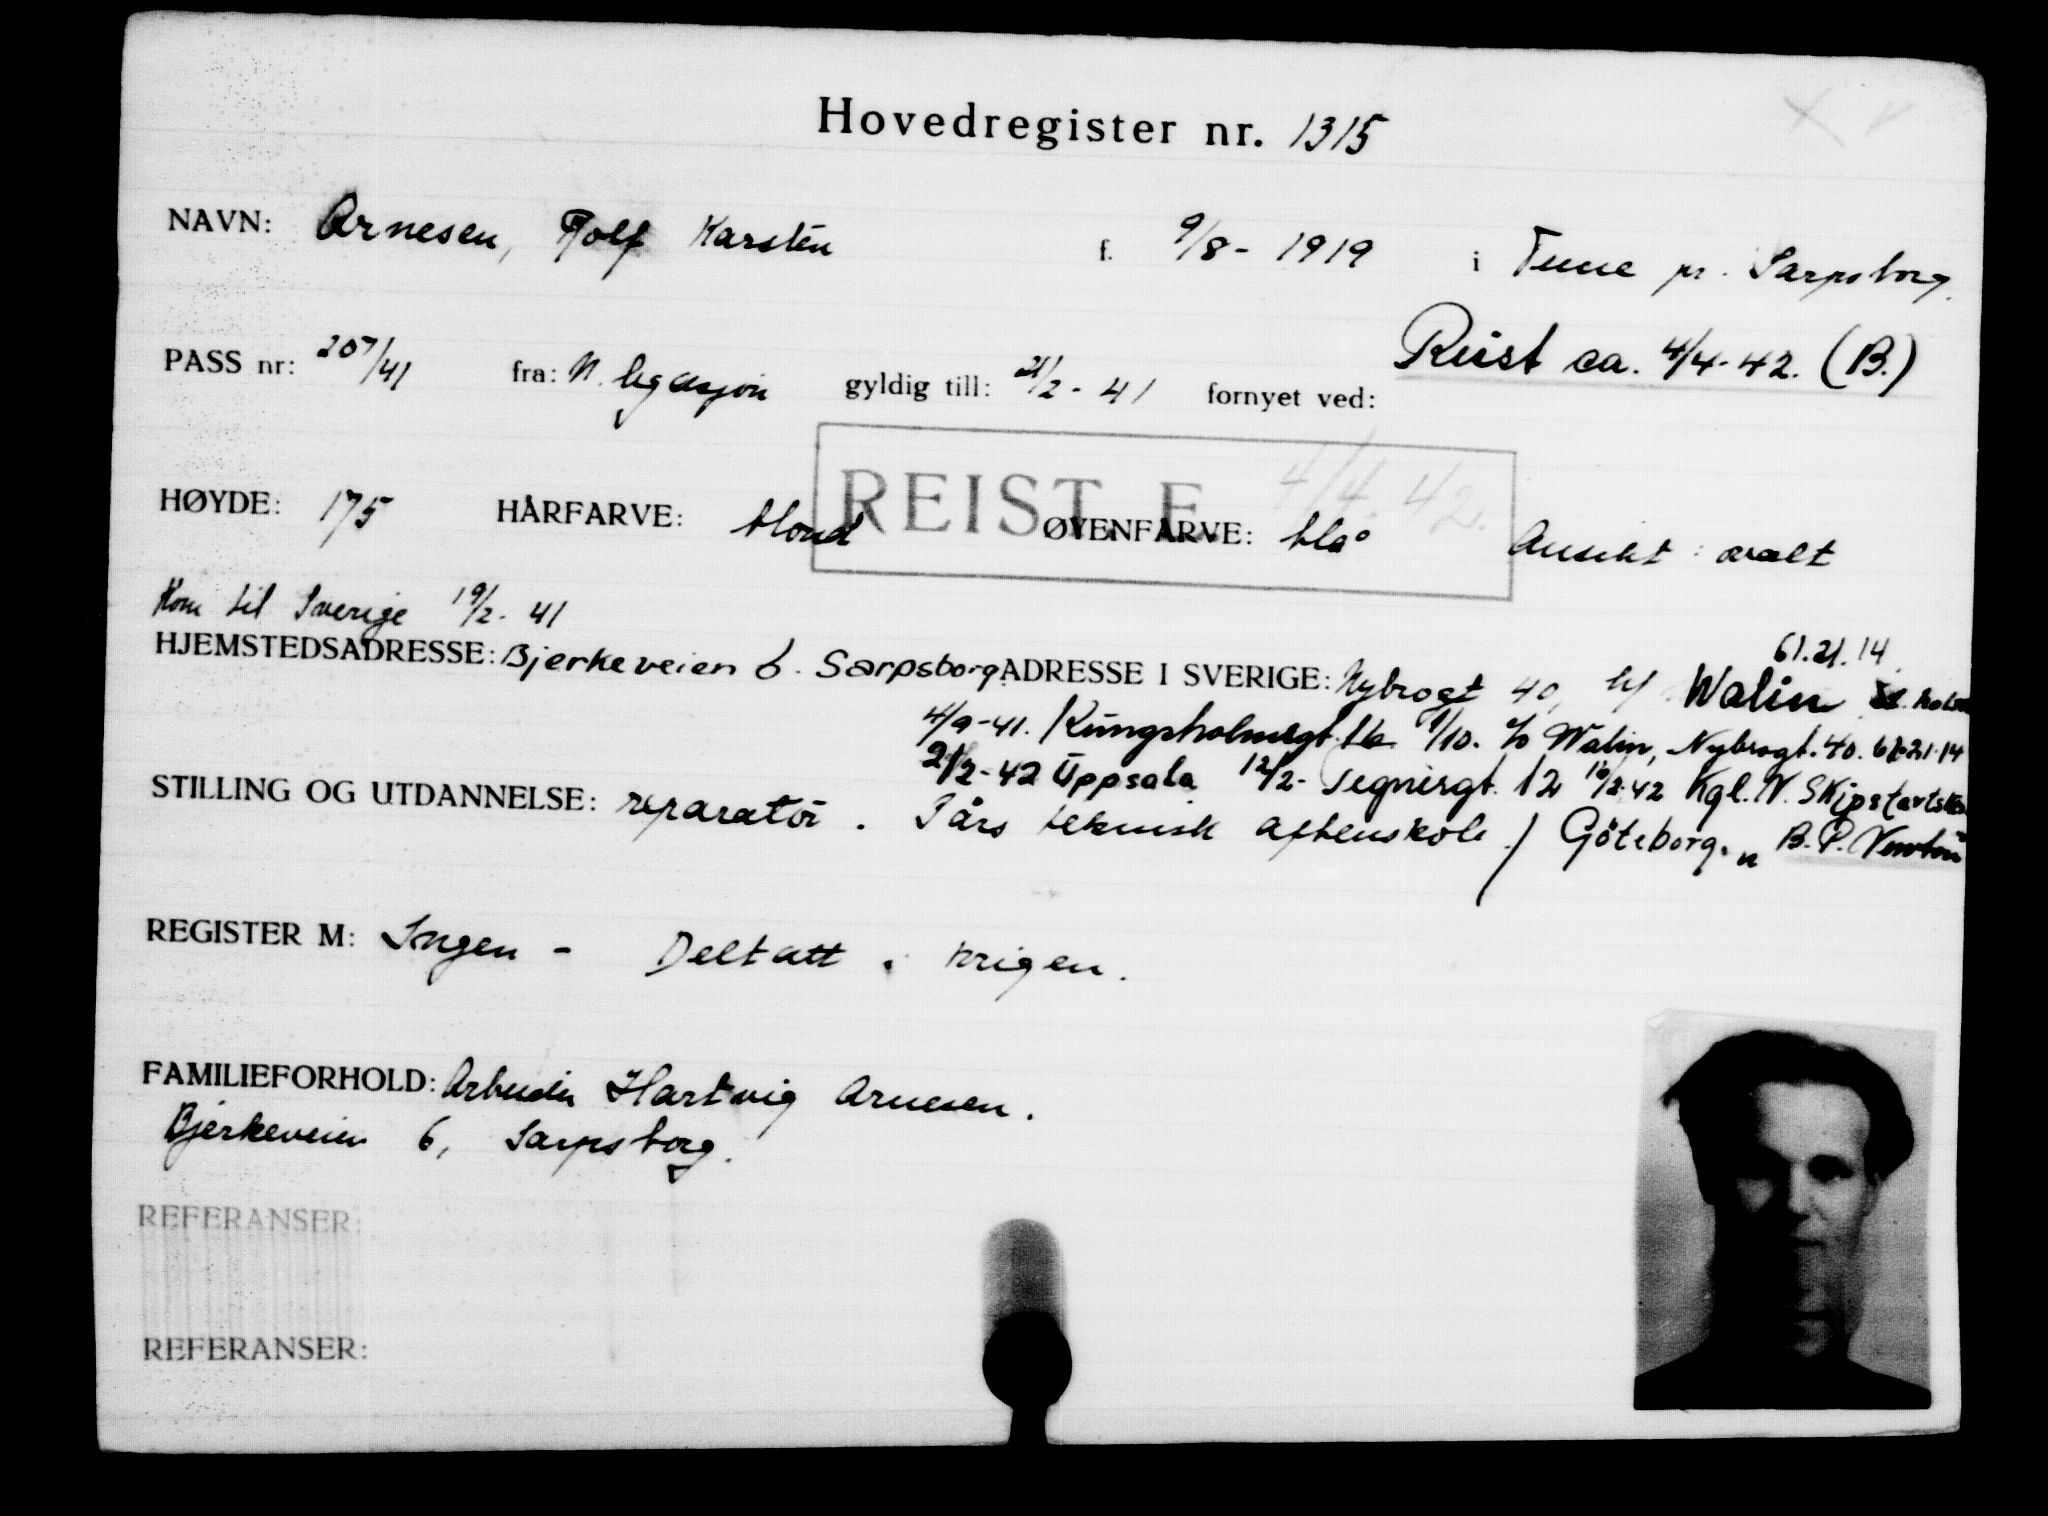 Hovedregister nr. 1315
NAVN: Arnesen, Rolf Karsten f. 9/8 - 1919 i Tune pr. Sarpsborg.
Reist ca. 4/4-42. (B.)
PASS nr: 207/41 fra: N. legasjon gyldig till: 21/2 - 41 fornyet ved:
REIST. E. 4/4.42.
HØYDE: 175 HÅRFARVE: blond ØYENFARVE: blå Ansikt: ovalt
Kom til Sverige 19/2 - 41
61.21.14.
HJEMSTEDSADRESSE: Bjerkeveien 6. Sarpsborg. ADRESSE I SVERIGE: Nybrogt 40, Walin
4/9-41. Kungsholmsgt. 16. 9/10. c/o Walin, Nybrogt. 40. 61.21.14
2/2-42 Uppsala 12/2- Tegnérgt. 12 16/2-42 Kgl. N. Skipsfartsk
STILLING OG UTDANNELSE: reparatör. 1 års teknisk aftenskole. / Göteborg. B. P. Newton
REGISTER M: Ingen - Deltatt i krigen.
FAMILIEFORHOLD: Arbeider Hartvig Arnesen.
Bjerkeveien 6, Sarpsborg.
REFERANSER:
REFERANSER: